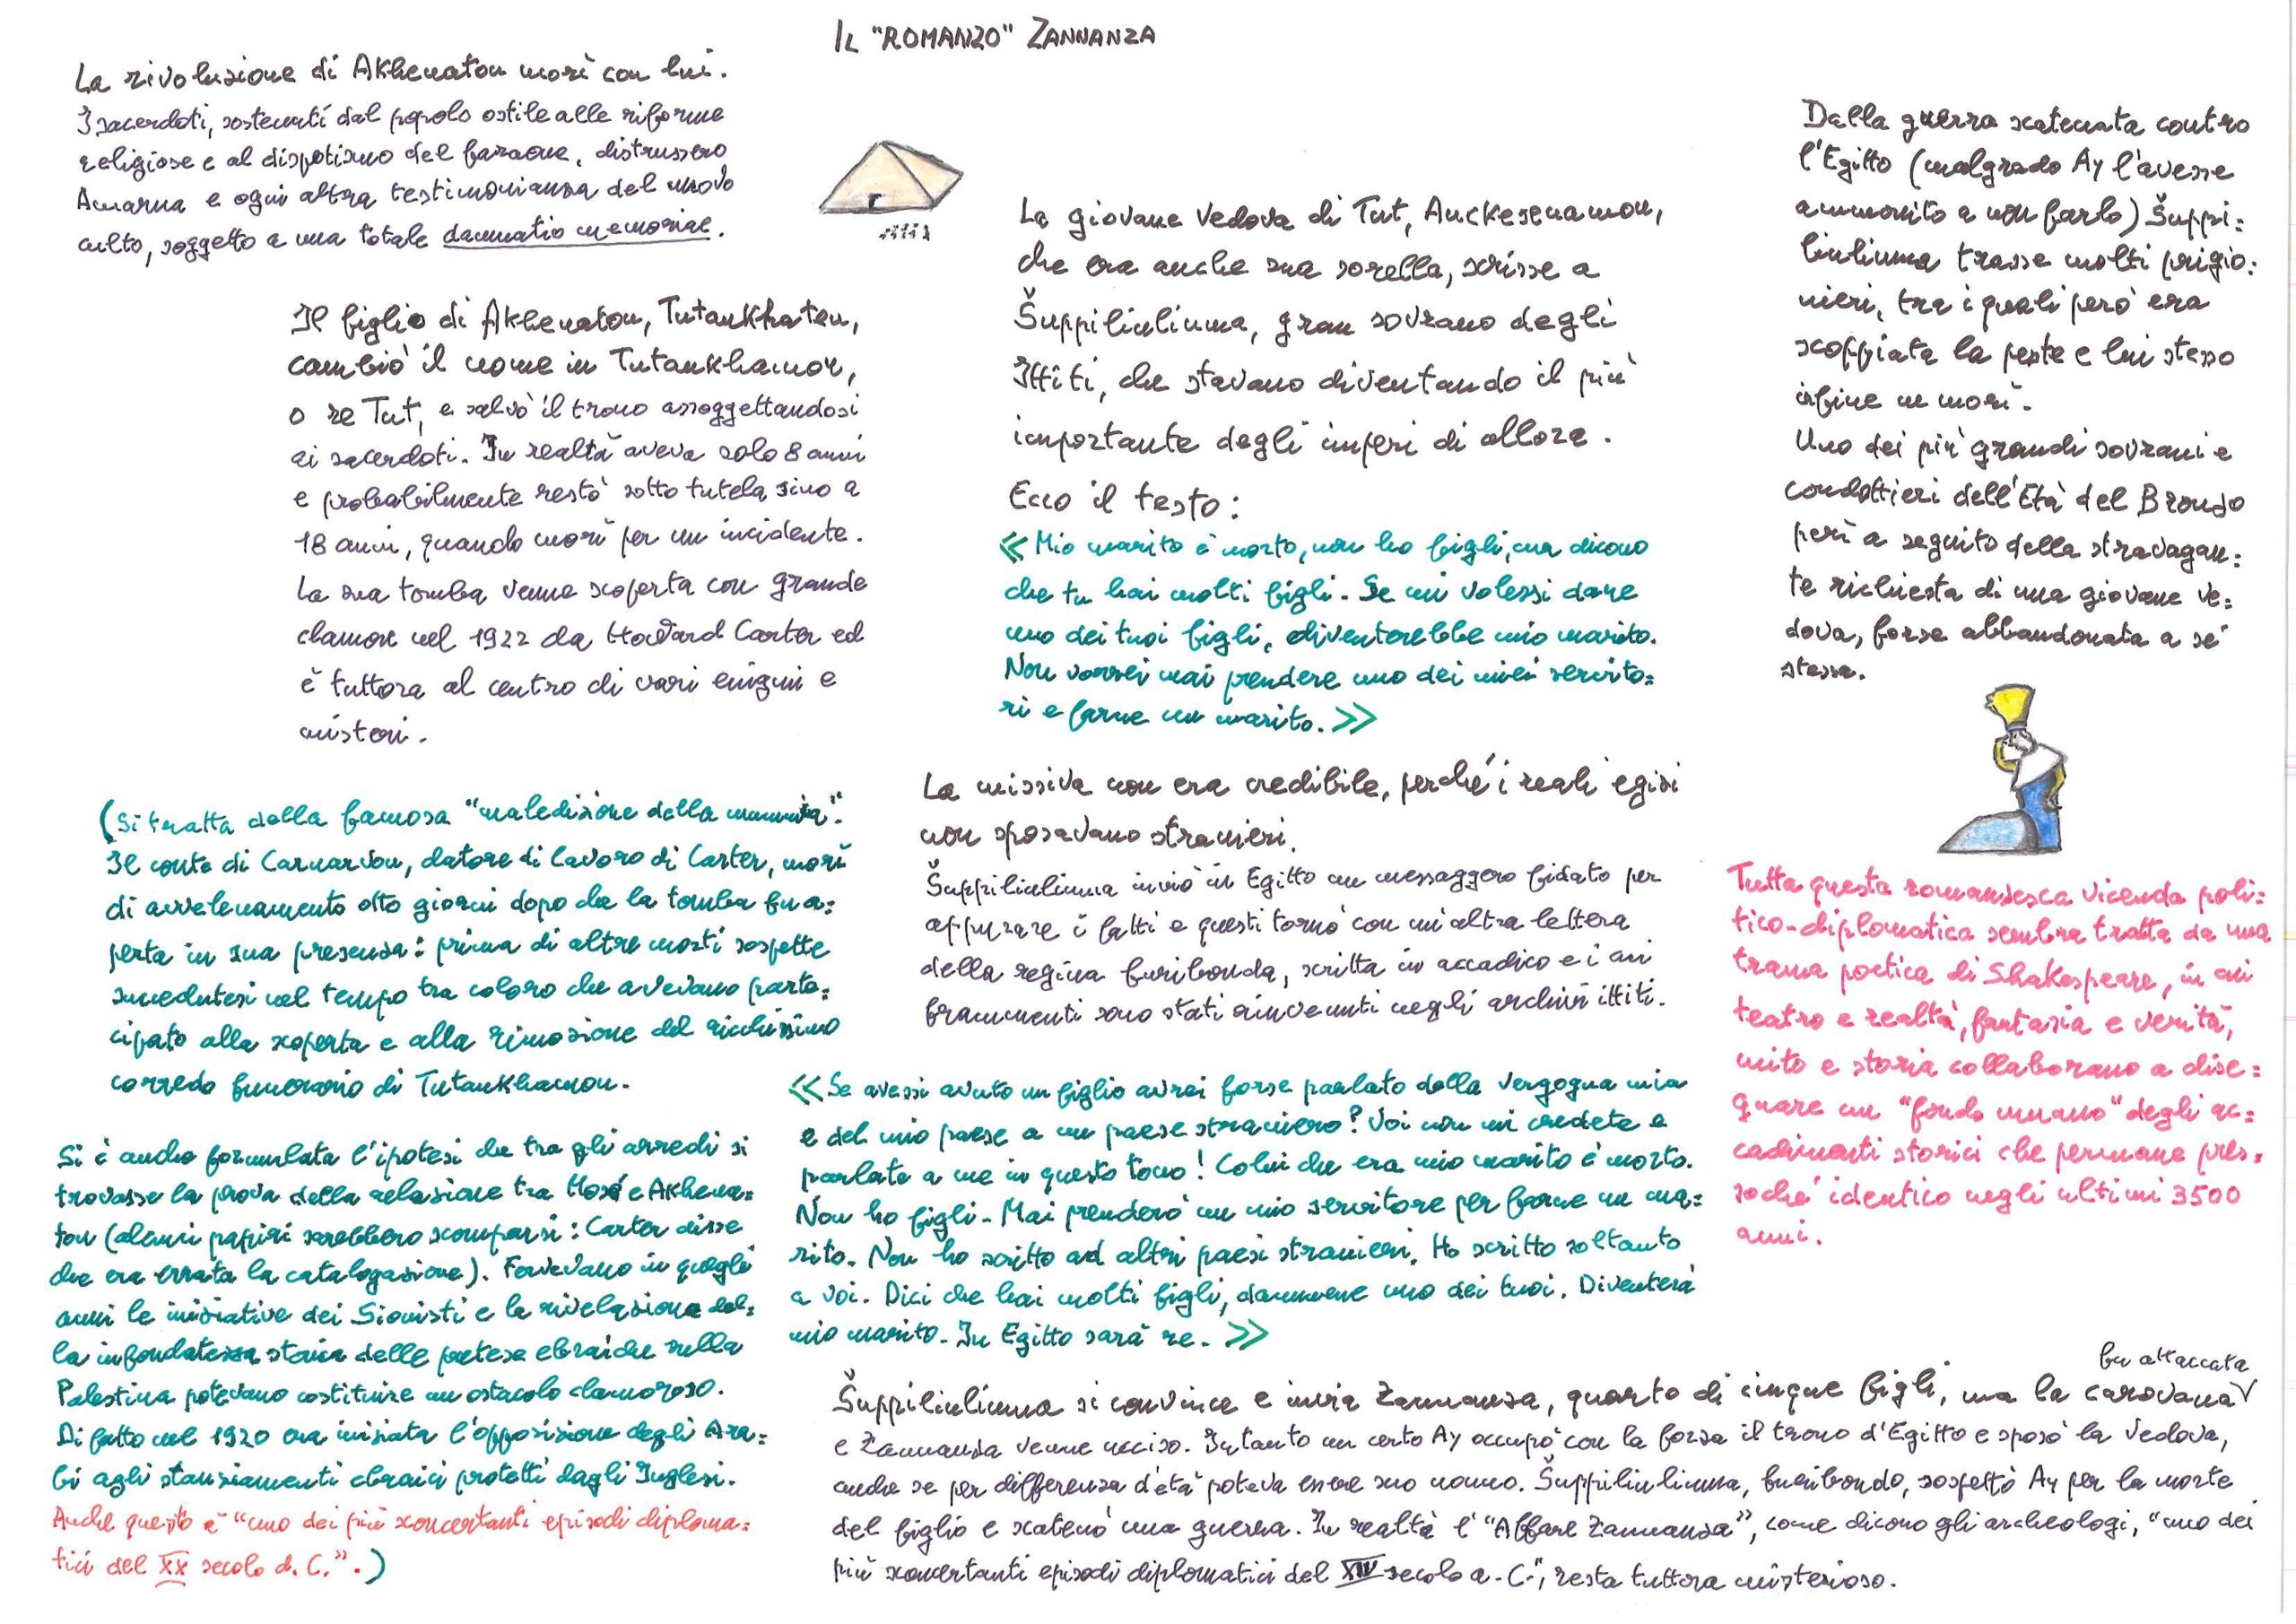 IL "ROMANZO" ZANNANZA
La rivoluzione di Akhenaton morì con lui.
I sacerdoti, sostenuti dal popolo ostile alle riforme
religiose e al dispotismo del faraone, distrussero
Amarna e ogni altra testimonianza del nuovo
culto, soggetto a una totale damnatio memoriae.
Il figlio di Akhenaton, Tutankhaten,
cambiò il nome in Tutankhamon,
o re Tut, e salvò il trono assoggettandosi
ai sacerdoti. In realtà aveva solo 8 anni
e probabilmente restò sotto tutela sino a
18 anni, quando morì per un incidente.
La sua tomba venne scoperta con grande
clamore nel 1922 da Howard Carter ed
è tuttora al centro di vari enigmi e
misteri.
(Si tratta della famosa "maledizione della mummia".
Il conte di Carnarvon, datore di lavoro di Carter, morì
di avvelenamento otto giorni dopo che la tomba fu a=
perta in sua presenza: prima di altre morti sospette
succedutesi nel tempo tra coloro che avevano parte=
cipato alla scoperta e alla rimozione del ricchissimo
corredo funerario di Tutankhamon.
Si è anche formulata l'ipotesi che tra gli arredi si
trovasse la prova della relazione tra Mosè e Akhena=
ton (alcuni papiri sarebbero scomparsi: Carter disse
che era errata la catalogazione). Fervevano in quegli
anni le iniziative dei Sionisti e la rivelazione del=
la infondatezza storica delle pretese ebraiche sulla
Palestina potevano costituire un ostacolo clamoroso.
Di fatto nel 1920 era iniziata l'opposizione degli Ara=
bi agli stanziamenti ebraici protetti dagli Inglesi.
Anche questo è "uno dei più sconcertanti episodi diploma=
tici del XX secolo d. C.".)
La giovane vedova di Tut, Anckesenamon,
che era anche sua sorella, scrisse a
Šuppiliuliuma, gran sovrano degli
Ittiti, che stavano diventando il più
importante degli imperi di allora.
Ecco il testo:
«Mio marito è morto, non ho figli, ma dicono
che tu hai molti figli. Se mi volessi dare
uno dei tuoi figli, diventerebbe mio marito.
Non vorrei mai prendere uno dei miei servito=
ri e farne un marito.»
La missiva non era credibile, perché i reali egizi
non sposavano stranieri.
Šuppiliuliuma inviò in Egitto un messaggero fidato per
appurare i fatti e questi tornò con un'altra lettera
della regina furibonda, scritta in accadico e i cui
frammenti sono stati rinvenuti negli archivi ittiti.
«Se avessi avuto un figlio avrei forse parlato della vergogna mia
e del mio paese a un paese straniero? Voi non mi credete e
parlate a me in questo tono! Colui che era mio marito è morto.
Non ho figli. Mai prenderò un mio servitore per farne un ma=
rito. Non ho scritto ad altri paesi stranieri. Ho scritto soltanto
a voi. Dici che hai molti figli, dammene uno dei tuoi. Diventerà
mio marito. In Egitto sarà re.»
Šuppiliuliuma si convince e invia Zannanza, quarto di cinque figli, ma la carovana fu attaccata
e Zannanza venne ucciso. Intanto un certo Ay occupò con la forza il trono d'Egitto e sposò la vedova,
anche se per differenza d'età poteva essere suo nonno. Šuppiliuliuma, furibondo, sospettò Ay per la morte
del figlio e scatenò una guerra. In realtà l'"Affare Zannanza", come dicono gli archeologi, "uno dei
più sconcertanti episodi diplomatici del XIV secolo a. C.", resta tuttora misterioso.
Dalla guerra scatenata contro
l'Egitto (malgrado Ay l'avesse
ammonito a non farlo) Šuppi=
liuliuma trasse molti prigio=
nieri, tra i quali però era
scoppiata la peste e lui stesso
infine ne morì.
Uno dei più grandi sovrani e
condottieri dell'Età del Bronzo
perì a seguito della stravagan=
te richiesta di una giovane ve=
dova, forse abbandonata a sé
stessa.
Tutta questa romanzesca vicenda poli=
tico-diplomatica sembra tratta da una
trama poetica di Shakespeare, in cui
teatro e realtà, fantasia e verità,
mito e storia collaborano a dise=
gnare un "fondo umano" degli ac=
cadimenti storici che permane pres=
soché identico negli ultimi 3500
anni.